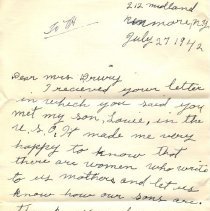 212 midland
Kenmore, N.Y.
July 27 1942
Dear Mrs Drury,
I recieved your letter
in which you said you
met my son, Louie, in the
U.S.O. It made me very
happy to know that
there are women who write
to us mothers and let us
know how our sons are.